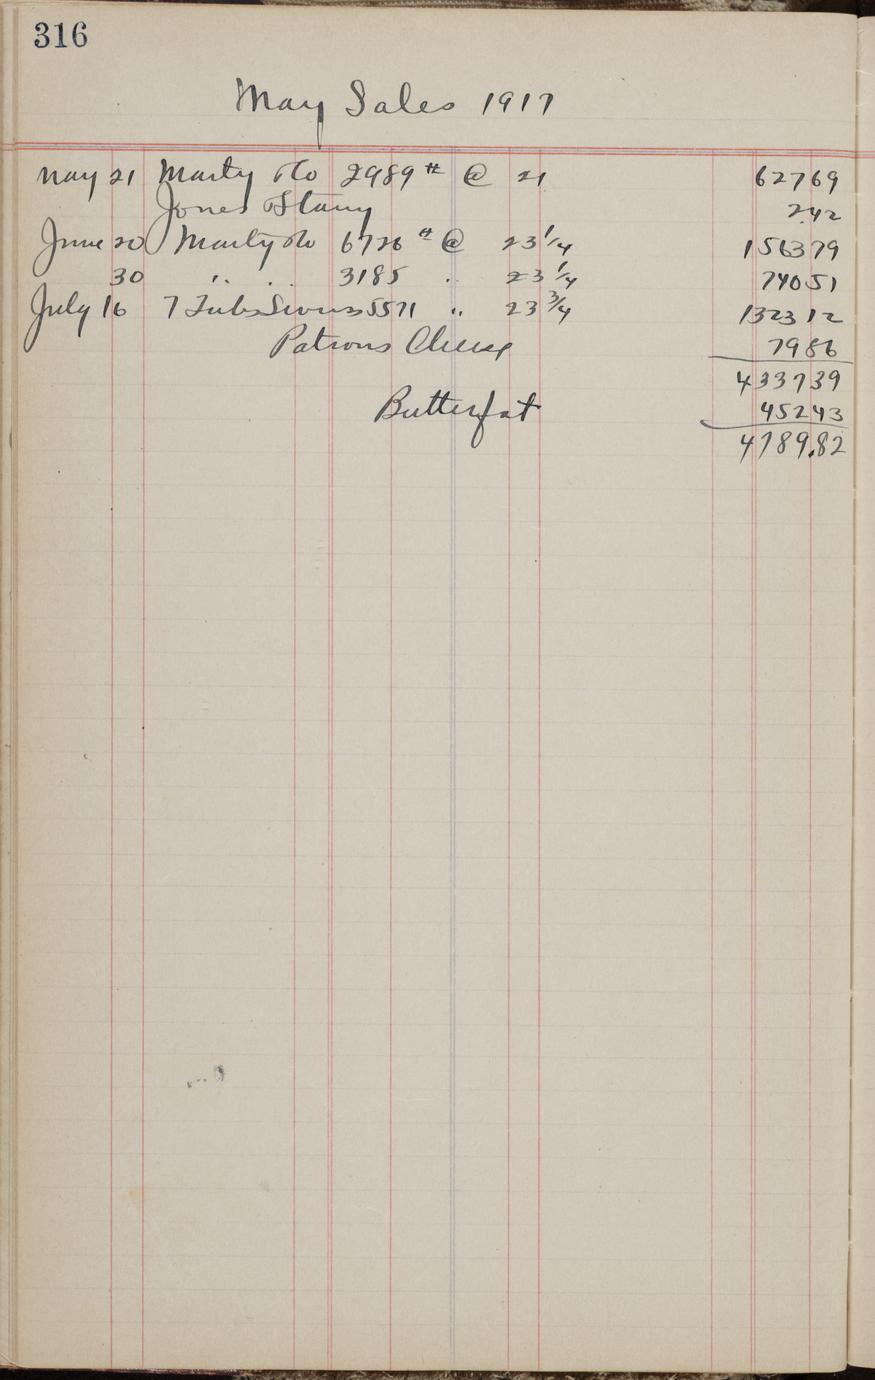 316
May Sales 1917
May 21 Marty & Co 2989 # @ 21 62769
Jones 2.42
June 20 Marty & Co 6726 # @ 23 1/4 156379
30 " " 3185 " 23 1/4 74051
July 16 7 Tubs Swiss 5571 " 23 3/4 132312
Patrons Cheese 7986
433739
Butterfat 45243
4789.82